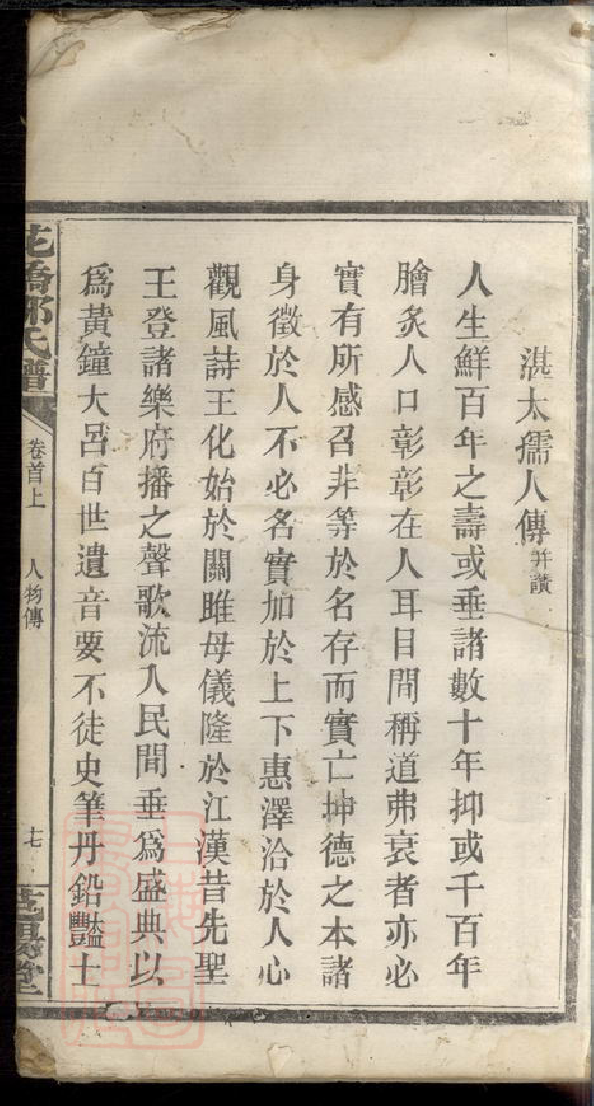 湛太孺人傳并讚
人生鮮百年之壽或垂諸數十年抑或千百年
膾炙人口彰彰在人耳目間稱道弗衰者亦必
實有所感召非等於名存而實亡坤德之本諸
身徵於人不必名實加於上下惠澤洽於人心
觀風詩王化始於關雎母儀隆於江漢昔先聖
王登諸樂府播之聲歌流入民間垂爲盛典以
爲黃鐘大呂百世遺音要不徒史筆丹鉛豔士
花橋 氏譜
卷首上
人物傳
七